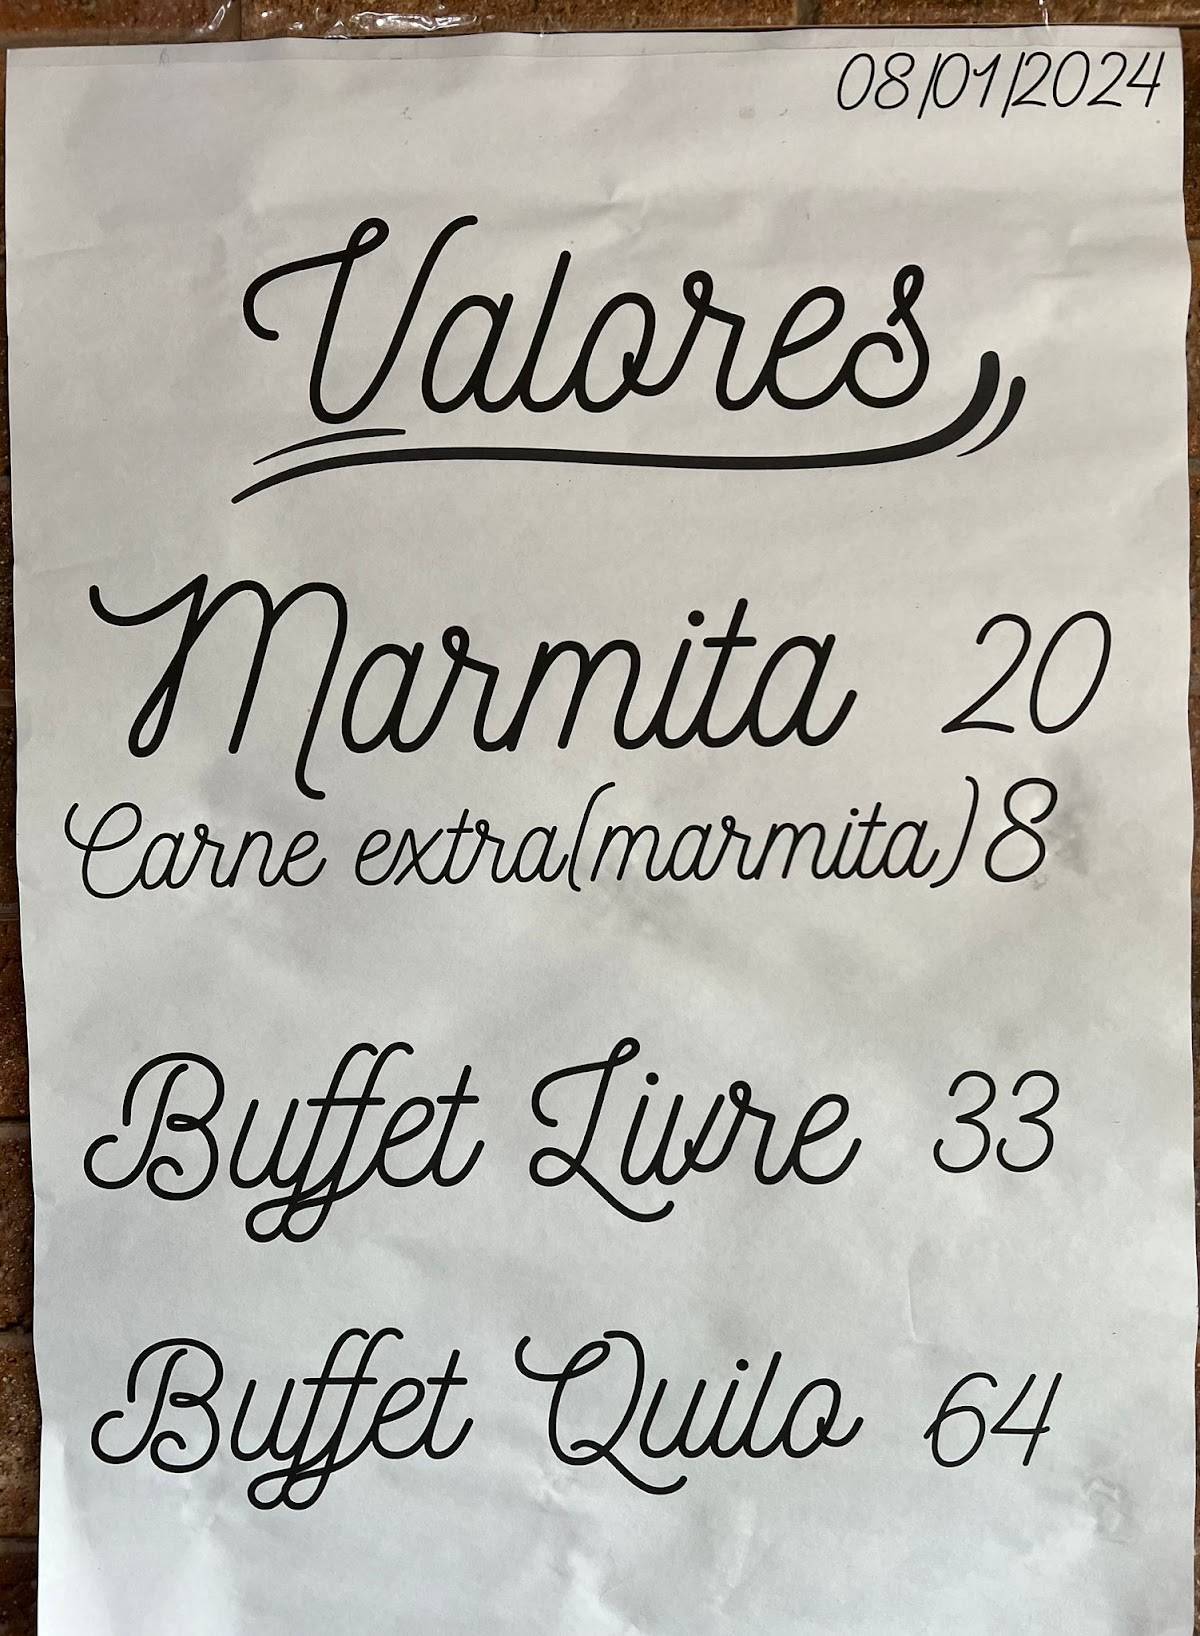 08/01/2024
Valores
Marmita 20
Carne extra(marmita)8
Buffet Livre 33
Buffet Quilo 64